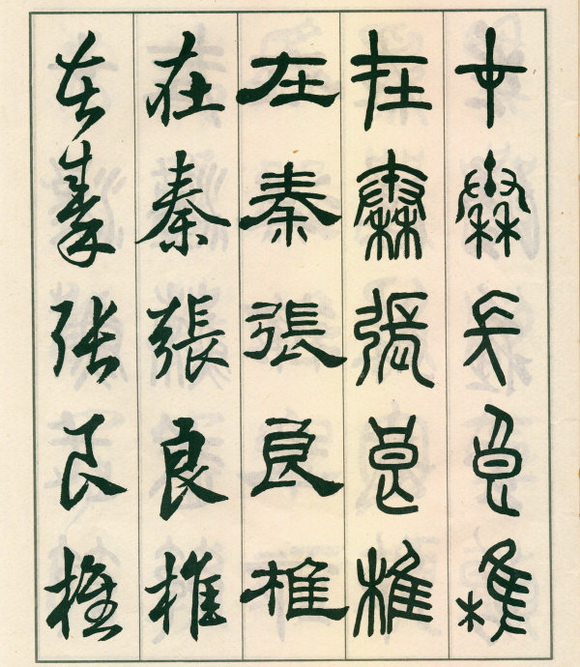 在秦張良椎
在秦張良椎
在秦張良椎
在秦張良椎
在秦張良椎